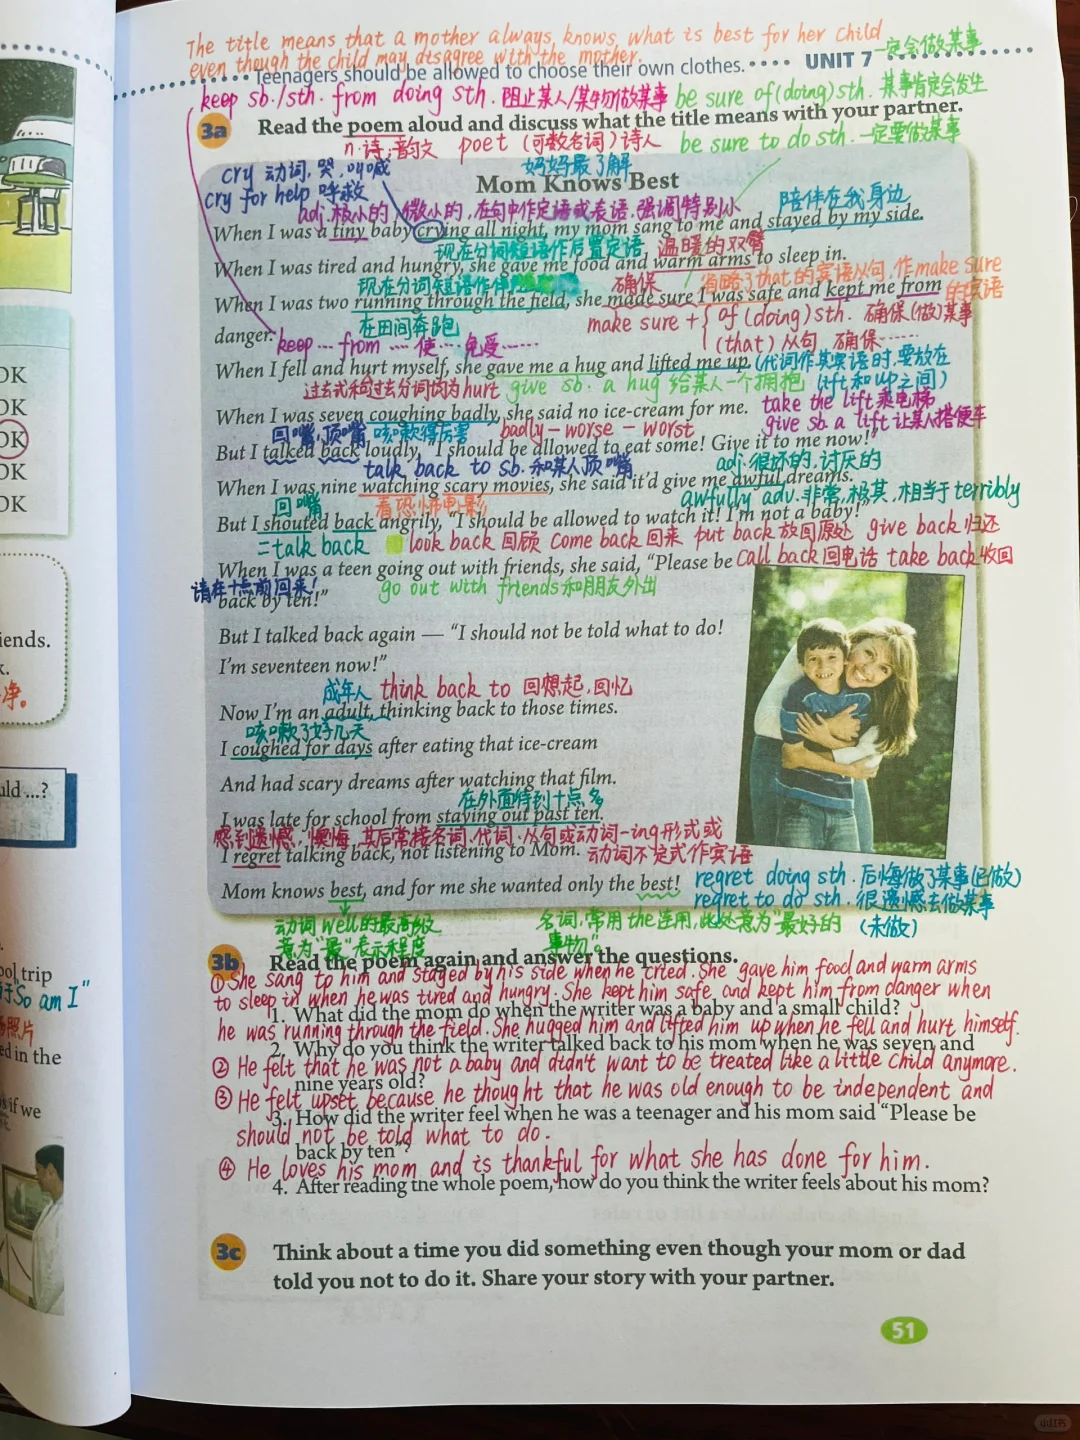 The title means that a mother always knows what is best for her child
even though the child may disagree with the mother.
一定会做某事
Teenagers should be allowed to choose their own clothes. UNIT 7
keep sb./sth. from doing sth. 阻止某人/某物做某事 be sure of (doing) sth. 某事肯定会发生
3a Read the poem aloud and discuss what the title means with your partner.
n.诗;韵文 poet (可数名词)诗人 be sure to do sth. 一定要做某事
cry 动词,哭,叫喊 妈妈最了解
Mom Knows Best
cry for help 呼救 陪伴在我身边
adj.极小的,微小的,在句中作定语或表语,强调特别小
When I was a tiny baby crying all night, my mom sang to me and stayed by my side.
现在分词短语作后置定语 温暖的双臂
When I was tired and hungry, she gave me food and warm arms to sleep in.
现在分词短语作伴 确保 省略了that的宾语从句,作make sure
的宾语
When I was two running through the field, she made sure I was safe and kept me from
在田间奔跑 make sure + { of (doing) sth. 确保(做)某事
danger. (that) 从句 确保……
keep … from …. 使…免受……
When I fell and hurt myself, she gave me a hug and lifted me up. (代词作其宾语时,要放在
过去式和过去分词均为hurt give sb. a hug 给某人一个拥抱 lift和up之间)
take the lift乘电梯
When I was seven coughing badly, she said no ice-cream for me.
give sb. a lift 让某人搭便车
回嘴,顶嘴 咳嗽得厉害 badly-worse-worst
But I talked back loudly, “I should be allowed to eat some! Give it to me now!”
talk back to sb. 和某人顶嘴 adj.很坏的,讨厌的
When I was nine watching scary movies, she said it’d give me awful dreams.
回嘴 看恐怖电影 awfully adv.非常,极其,相当于terribly
But I shouted back angrily, “I should be allowed to watch it! I’m not a baby!”
=talk back look back回顾 come back回来 put back放回原处 give back归还
When I was a teen going out with friends, she said, “Please be
call back回电话 take back收回
请在十点前回来!
back by ten!”
go out with friends和朋友外出
But I talked back again — “I should not be told what to do!
I’m seventeen now!”
成年人 think back to 回想起,回忆
Now I’m an adult, thinking back to those times.
咳嗽了好几天
I coughed for days after eating that ice-cream
And had scary dreams after watching that film.
在外面待到十点多
I was late for school from staying out past ten.
感到遗憾,懊悔,其后常接名词.代词.从句或动词-ing形式或
I regret talking back, not listening to Mom. 动词不定式作宾语
Mom knows best, and for me she wanted only the best!
regret doing sth. 后悔做了某事(已做)
regret to do sth. 很遗憾去做某事
(未做)
动词well的最高级 名词,常用the连用,此处意为“最好的
意为“最”表示程度 事物”。
3b Read the poem again and answer the questions.
①She sang to him and stayed by his side when he cried. She gave him food and warm arms
to sleep in when he was tired and hungry. She kept him safe and kept him from danger when
1. What did the mom do when the writer was a baby and a small child?
he was running through the field. She hugged him and lifted him up when he fell and hurt himself.
2. Why do you think the writer talked back to his mom when he was seven and
② He felt that he was not a baby and didn't want to be treated like a little child anymore.
nine years old?
③ He felt upset because he thought that he was old enough to be independent and
3. How did the writer feel when he was a teenager and his mom said “Please be
should not be told what to do.
back by ten”?
④ He loves his mom and is thankful for what she has done for him.
4. After reading the whole poem, how do you think the writer feels about his mom?
3c Think about a time you did something even though your mom or dad
told you not to do it. Share your story with your partner.
51
OK
OK
OK
OK
OK
iends.
k.
净。
uld ...?
ool trip
于So am I"
照片
ed in the
s if we
小红书